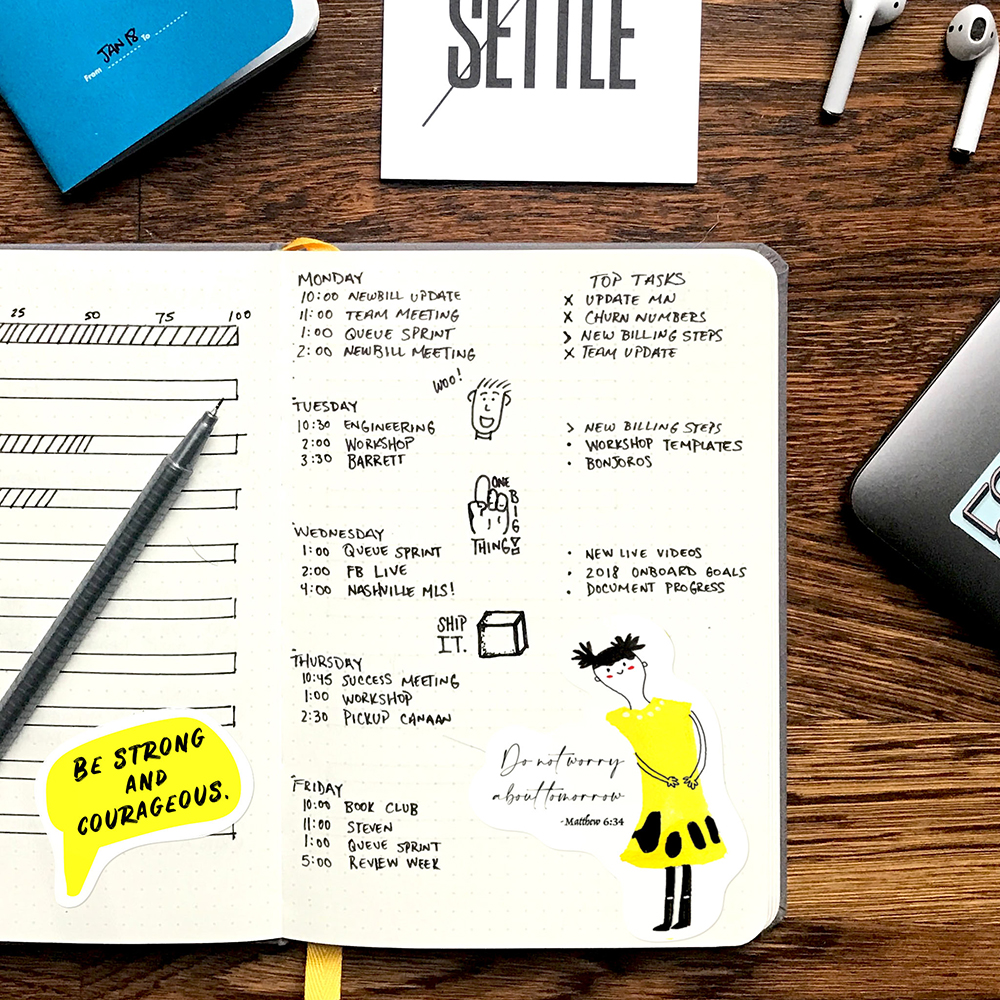 JAN 18
From To
SETTLE
25 50 75 100
MONDAY
10:00 NEWBILL UPDATE
11:00 TEAM MEETING
1:00 QUEUE SPRINT
2:00 NEWBILL MEETING
TOP TASKS
X UPDATE MN
X CHURN NUMBERS
> NEW BILLING STEPS
X TEAM UPDATE
WOO!
TUESDAY
10:30 ENGINEERING
2:00 WORKSHOP
3:30 BARRETT
> NEW BILLING STEPS
• WORKSHOP TEMPLATES
• BONJOROS
ONE
BIG
THING
WEDNESDAY
1:00 QUEUE SPRINT
2:00 FB LIVE
4:00 NASHVILLE MLS!
• NEW LIVE VIDEOS
• 2018 ONBOARD GOALS
• DOCUMENT PROGRESS
SHIP
IT.
THURSDAY
10:45 SUCCESS MEETING
1:00 WORKSHOP
2:30 PICKUP CANAAN
FRIDAY
10:00 BOOK CLUB
11:00 STEVEN
1:00 QUEUE SPRINT
5:00 REVIEW WEEK
BE STRONG
AND
COURAGEOUS.
Do not worry
about tomorrow
-Matthew 6:34